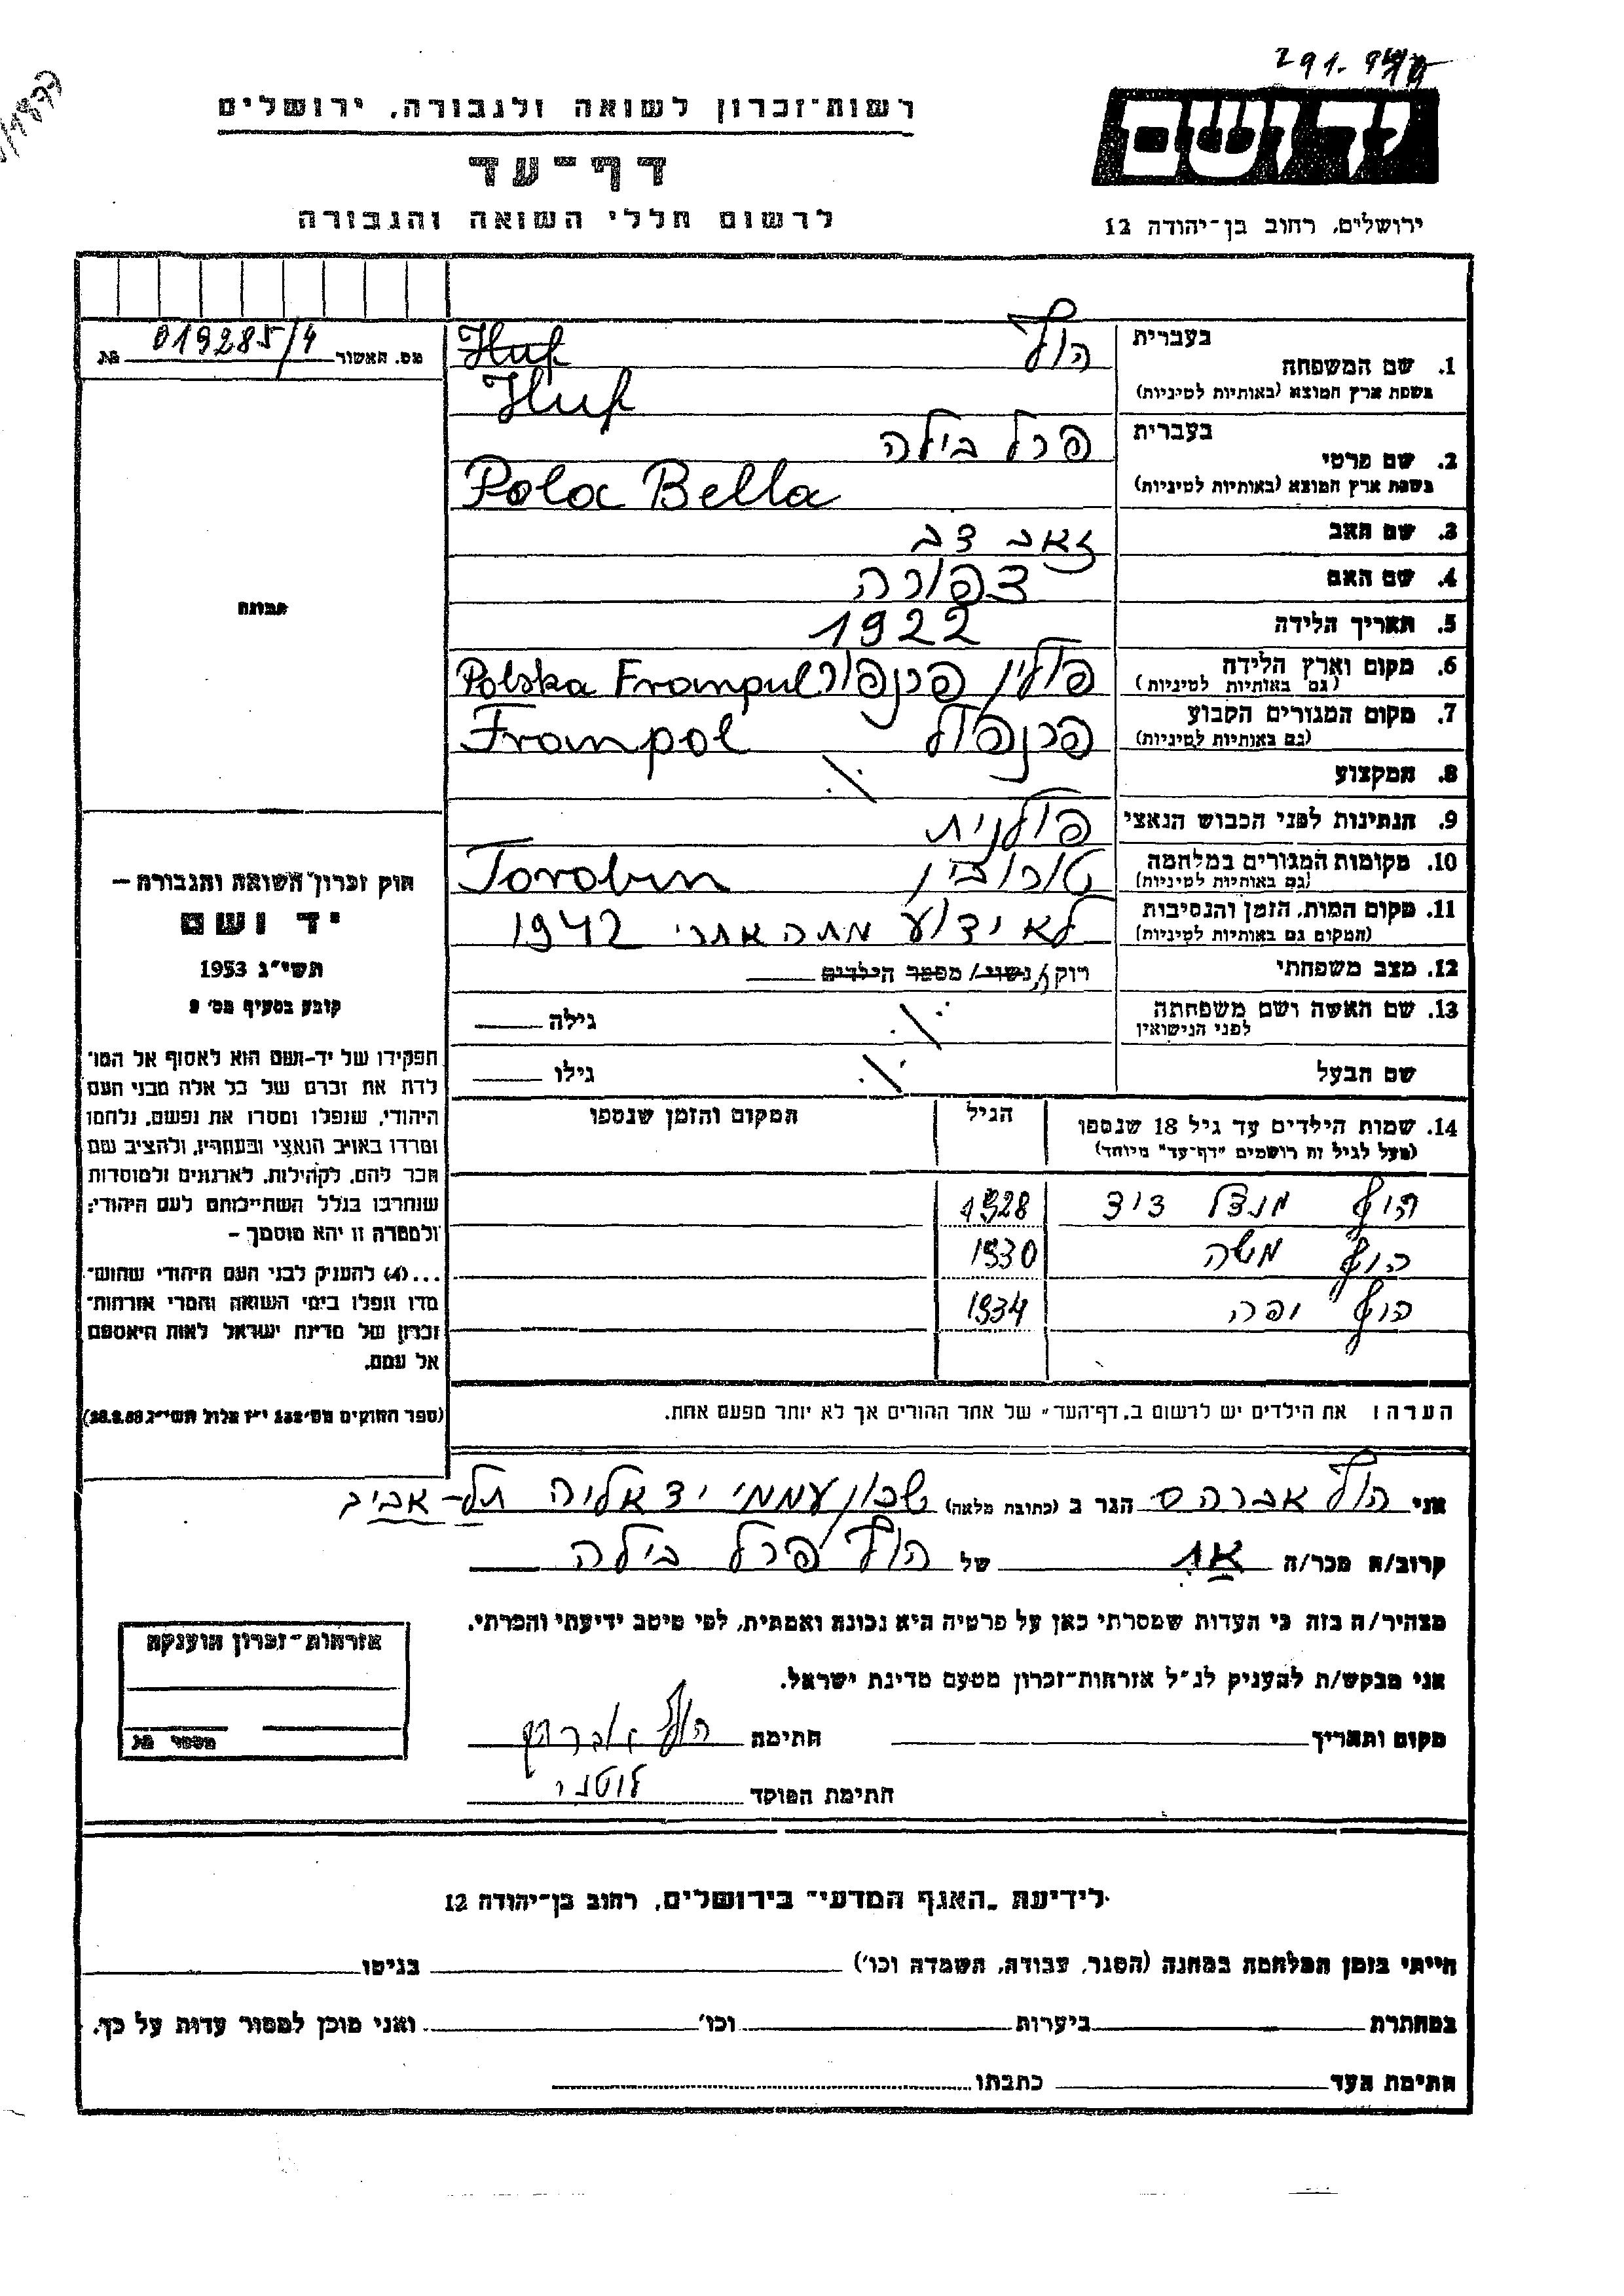 291.
יד ושם
רשות־זכרון לשואה ולגבורה, ירושלים
דף־עד
לרשום חללי השואה והגבורה
ירושלים, רחוב בן־יהודה 12
מס. האשור 019285/4
בעברית הוף
1. שם המשפחה Huf
בשפת ארץ המוצא (באותיות לטיניות) Huf
בעברית פרל בילה
2. שם פרטי
בשפת ארץ המוצא (באותיות לטיניות) Pola Bella
3. שם האב זאב דב
4. שם האם צפורה
5. תאריך הלידה 1922
6. מקום וארץ הלידה פולין Polska Frampul
(גם באותיות לטיניות)
7. מקום המגורים הקבוע פרנפול Frampol
(גם באותיות לטיניות)
8. המקצוע
9. הנתינות לפני הכבוש הנאצי פולנית
10. מקומות המגורים במלחמה טורובין Torobin
(גם באותיות לטיניות)
11. מקום המות, הזמן והנסיבות לא ידוע מתה אחרי 1942
(המקום גם באותיות לטיניות)
12. מצב משפחתי רוק/ נשוי/ מספר הילדים
13. שם האשה ושם משפחתה גילה
לפני הנישואין
שם הבעל גילו
14. שמות הילדים עד גיל 18 שנספו הגיל המקום והזמן שנספו
(מעל לגיל זה רושמים "דף־עד" מיוחד)
הוף מנדל דוד 1928
הוף משה 1930
הוף יפה 1934
הערה: את הילדים יש לרשום ב„דף־העד" של אחד ההורים אך לא יותר מפעם אחת.
תמונה
חוק זכרון השואה והגבורה —
יד ושם
תשי"ג 1953
קובע בסעיף מס' 2
תפקידו של יד-ושם הוא לאסוף אל המו־
לדת את זכרם של כל אלה מבני העם
היהודי, שנפלו ומסרו את נפשם, נלחמו
ומרדו באויב הנאצי ובעוזריו, ולהציב שם
וזכר להם, לקהילות, לארגונים ולמוסדות
שנחרבו בגלל השתייכותם לעם היהודי;
ולמטרה זו יהא מוסמך —
...(4) להעניק לבני העם היהודי שהוש־
מדו ונפלו בימי השואה והמרי אזרחות־
זכרון של מדינת ישראל לאות היאספם
אל עמם.
(ספר החוקים מס' 132 י"ז אלול תשי"ג 28.8.53)
אני הוף אברהם הגר ב (כתובת מלאה) שכון עממי יד אליהו תל-אביב
קרוב/ה מכר/ה אח של הוף פרל בילה
מצהיר/ה בזה כי העדות שמסרתי כאן על פרטיה היא נכונה ואמתית, לפי מיטב ידיעתי והכרתי.
אני מבקש/ת להעניק לנ"ל אזרחות־זכרון מטעם מדינת ישראל.
מקום ותאריך חתימה הוף אברהם
חתימת הפוקד
אזרחות־זכרון הוענקה
מספר
לידיעת „האגף המדעי" בירושלים, רחוב בן־יהודה 12
הייתי בזמן המלחמה במחנה (הסגר, עבודה, השמדה וכו') בגיטו
במחתרת ביערות וכו' ואני מוכן למסור עדות על כך.
חתימת העד כתבתו